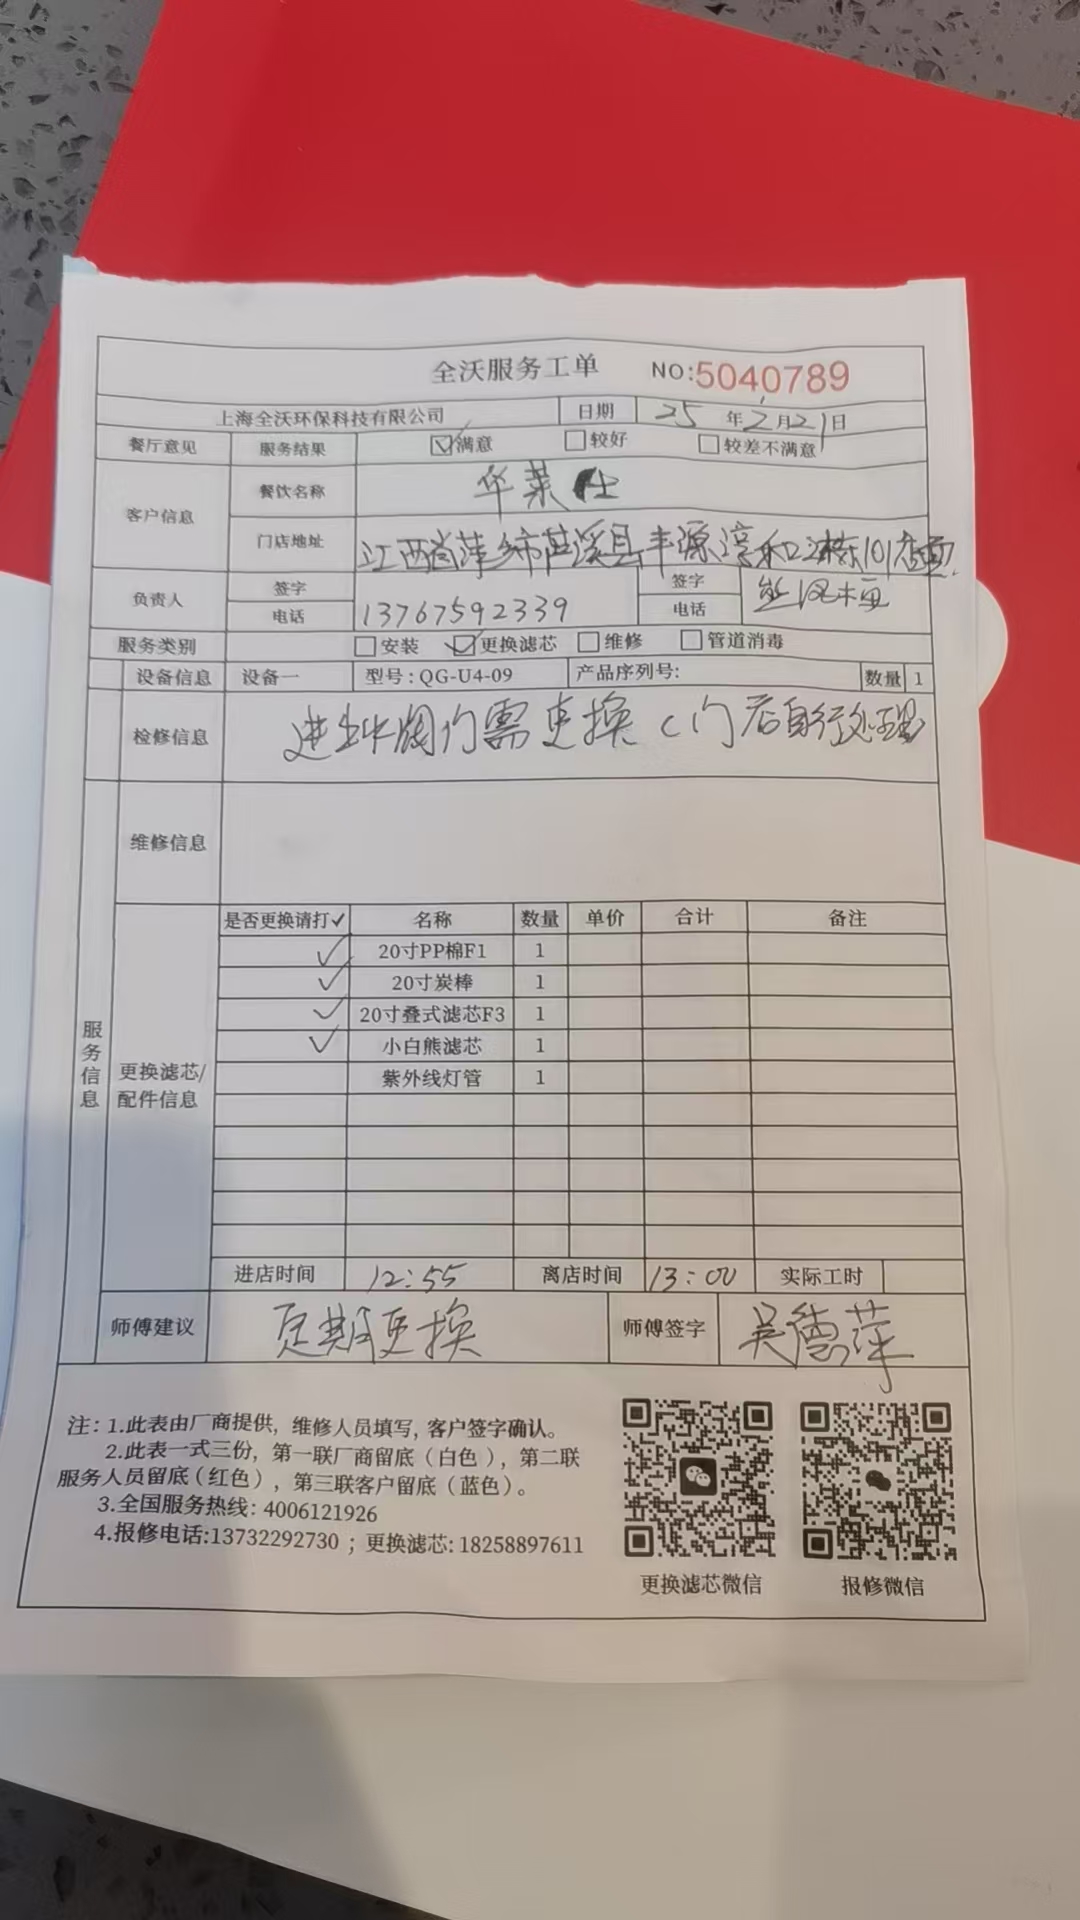 全沃服务工单 NO:5040789
上海全沃环保科技有限公司 日期 25 年 2 月 21 日
餐厅意见 服务结果 ☑满意 □较好 □较差不满意
客户信息 餐饮名称 华莱仕
门店地址 江西省萍乡市芦溪县丰源淳和 栋101店面.
负责人 签字 签字 熊凤梅
电话 13767592339 电话
服务类别 □安装 ☑更换滤芯 □维修 □管道消毒
设备信息 设备一 型号:QG-U4-09 产品序列号: 数量 1
检修信息 进出水阀门需更换(门店自行处理)
维修信息
服务信息
更换滤芯/
配件信息
是否更换请打✓ 名称 数量 单价 合计 备注
✓ 20寸PP棉F1 1
✓ 20寸炭棒 1
✓ 20寸叠式滤芯F3 1
✓ 小白熊滤芯 1
紫外线灯管 1
进店时间 12:55 离店时间 13:00 实际工时
师傅建议 定期更换 师傅签字 吴德萍
注: 1.此表由厂商提供, 维修人员填写, 客户签字确认。
2.此表一式三份, 第一联厂商留底(白色), 第二联
服务人员留底(红色), 第三联客户留底(蓝色)。
3.全国服务热线: 4006121926
4.报修电话:13732292730 ; 更换滤芯: 18258897611
更换滤芯微信 报修微信